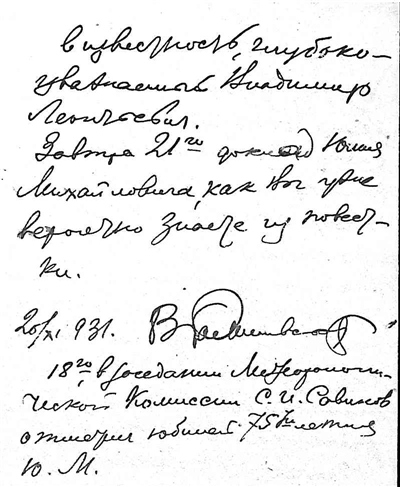 в известность, глубоко-
уважаемый Владимир
Леонтьевич.
Завтра 21го доклад Юлия
Михайловича, как Вы уже
вероятно знаете из повест-
ки.
20/XI 931.
18го, в заседании Метеорологи-
ческой Комиссии С. И. Савинов
отметил юбилей 75ти летия
Ю. М.